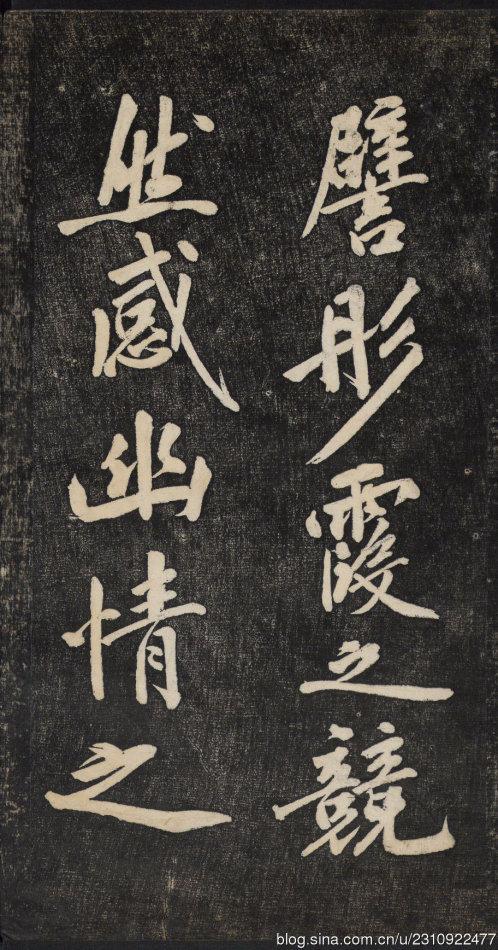 譬彤霞之競
然感幽情之
blog.sina.com.cn/u/2310922477